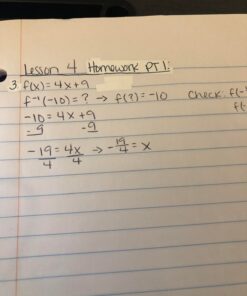 Lesson 4 Homework PT 1:
3. f(x) = 4x+9
f⁻¹(-10) = ? → f(?) = -10 Check: f(-
-10 = 4x+9 f(-
-9 -9
-19 = 4x → -19/4 = x
4 4